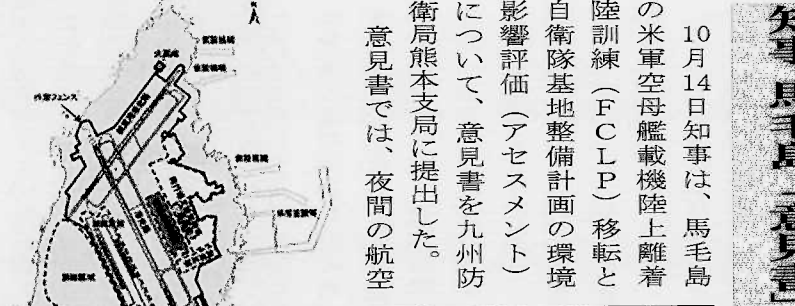 知事 馬毛島「意見書」
10月14日知事は、馬毛島
の米軍空母艦載機陸上離着
陸訓練（FCLP）移転と
自衛隊基地整備計画の環境
影響評価（アセスメント）
について、意見書を九州防
衛局熊本支局に提出した。
意見書では、夜間の航空
外周フェンス